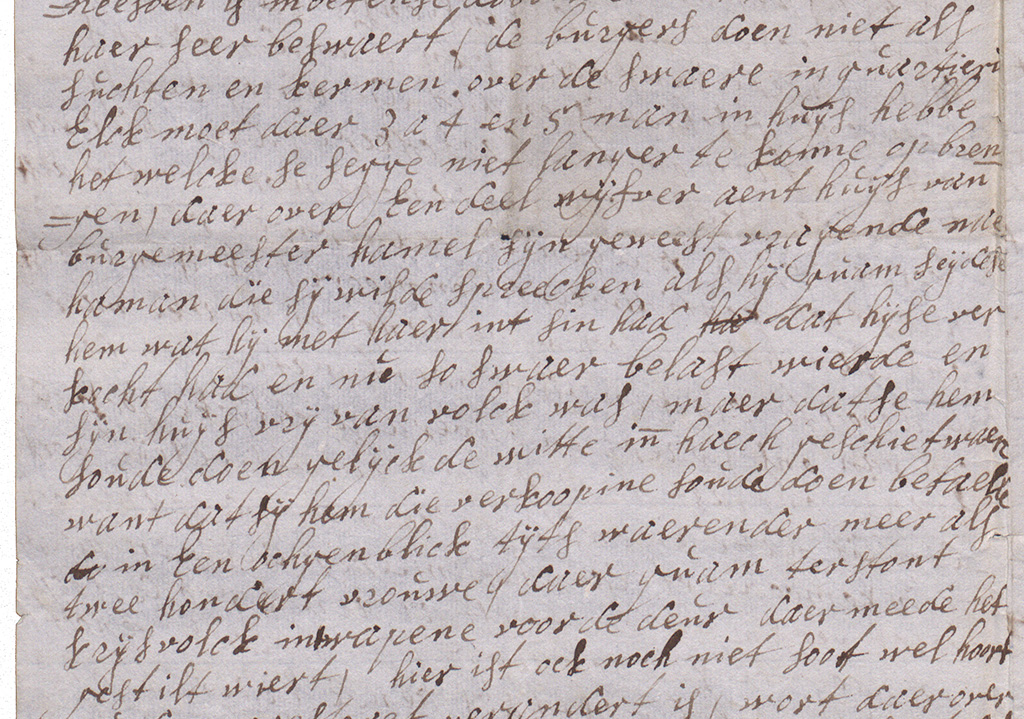 haer seer beswaert, de burgers doen niet als
suchten en kermen. over de swaere inquartieri
Elck moet daer 3 a 4 en 5 man in huijs hebbe
het welcke se segge niet langer te konne opbren
=gen, daer over Een deel wijfver aent huijs van
burgemeester hamel sijn geweest vragende nae
haman die sij wilde spreecken als hij quam seijde
hem wat hij met haer int sin had dat hijse ver
kocht had en nu so swaer belast wierde en
sijn huijs vrij van volck was, maer datse hem
soude doen gelijck de witte in haech geschiet waer
want dat sij hem die verkoopine soude doen betaele
in Een ochgenblick tijts waerender meer als
twee hondert vrouwe daer quam terstont
krijsvolck in wapene voor de deur daer meede het
gestilt wiert, hier ist ock noch niet soot wel hoort
verandert is, wort daer over